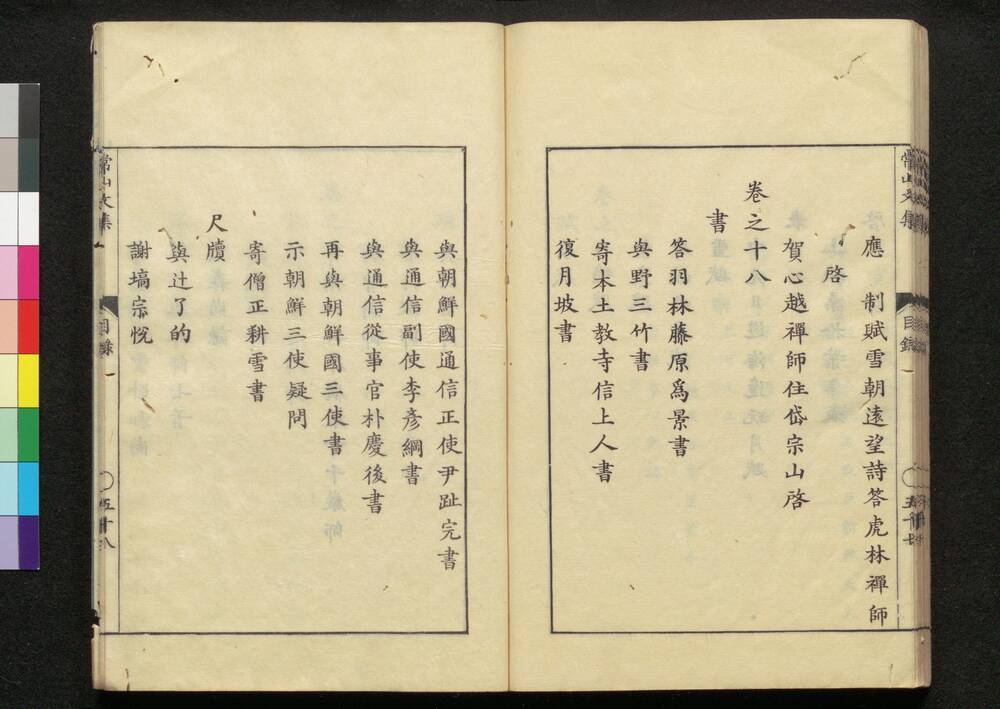 常山文集
目錄
五十七
應　制賦雪朝遠望詩答虎林禪師
啓
賀心越禪師住岱宗山啓
卷之十八
書
答羽林藤原爲景書
與野三竹書
寄本土教寺信上人書
復月坡書
與朝鮮國通信正使尹趾完書
與通信副使李彥綱書
與通信從事官朴慶後書
再與朝鮮國三使書
示朝鮮三使疑問
寄僧正耕雪書
尺牘
與辻了的
謝塙宗悅
常山文集
目錄
五十八